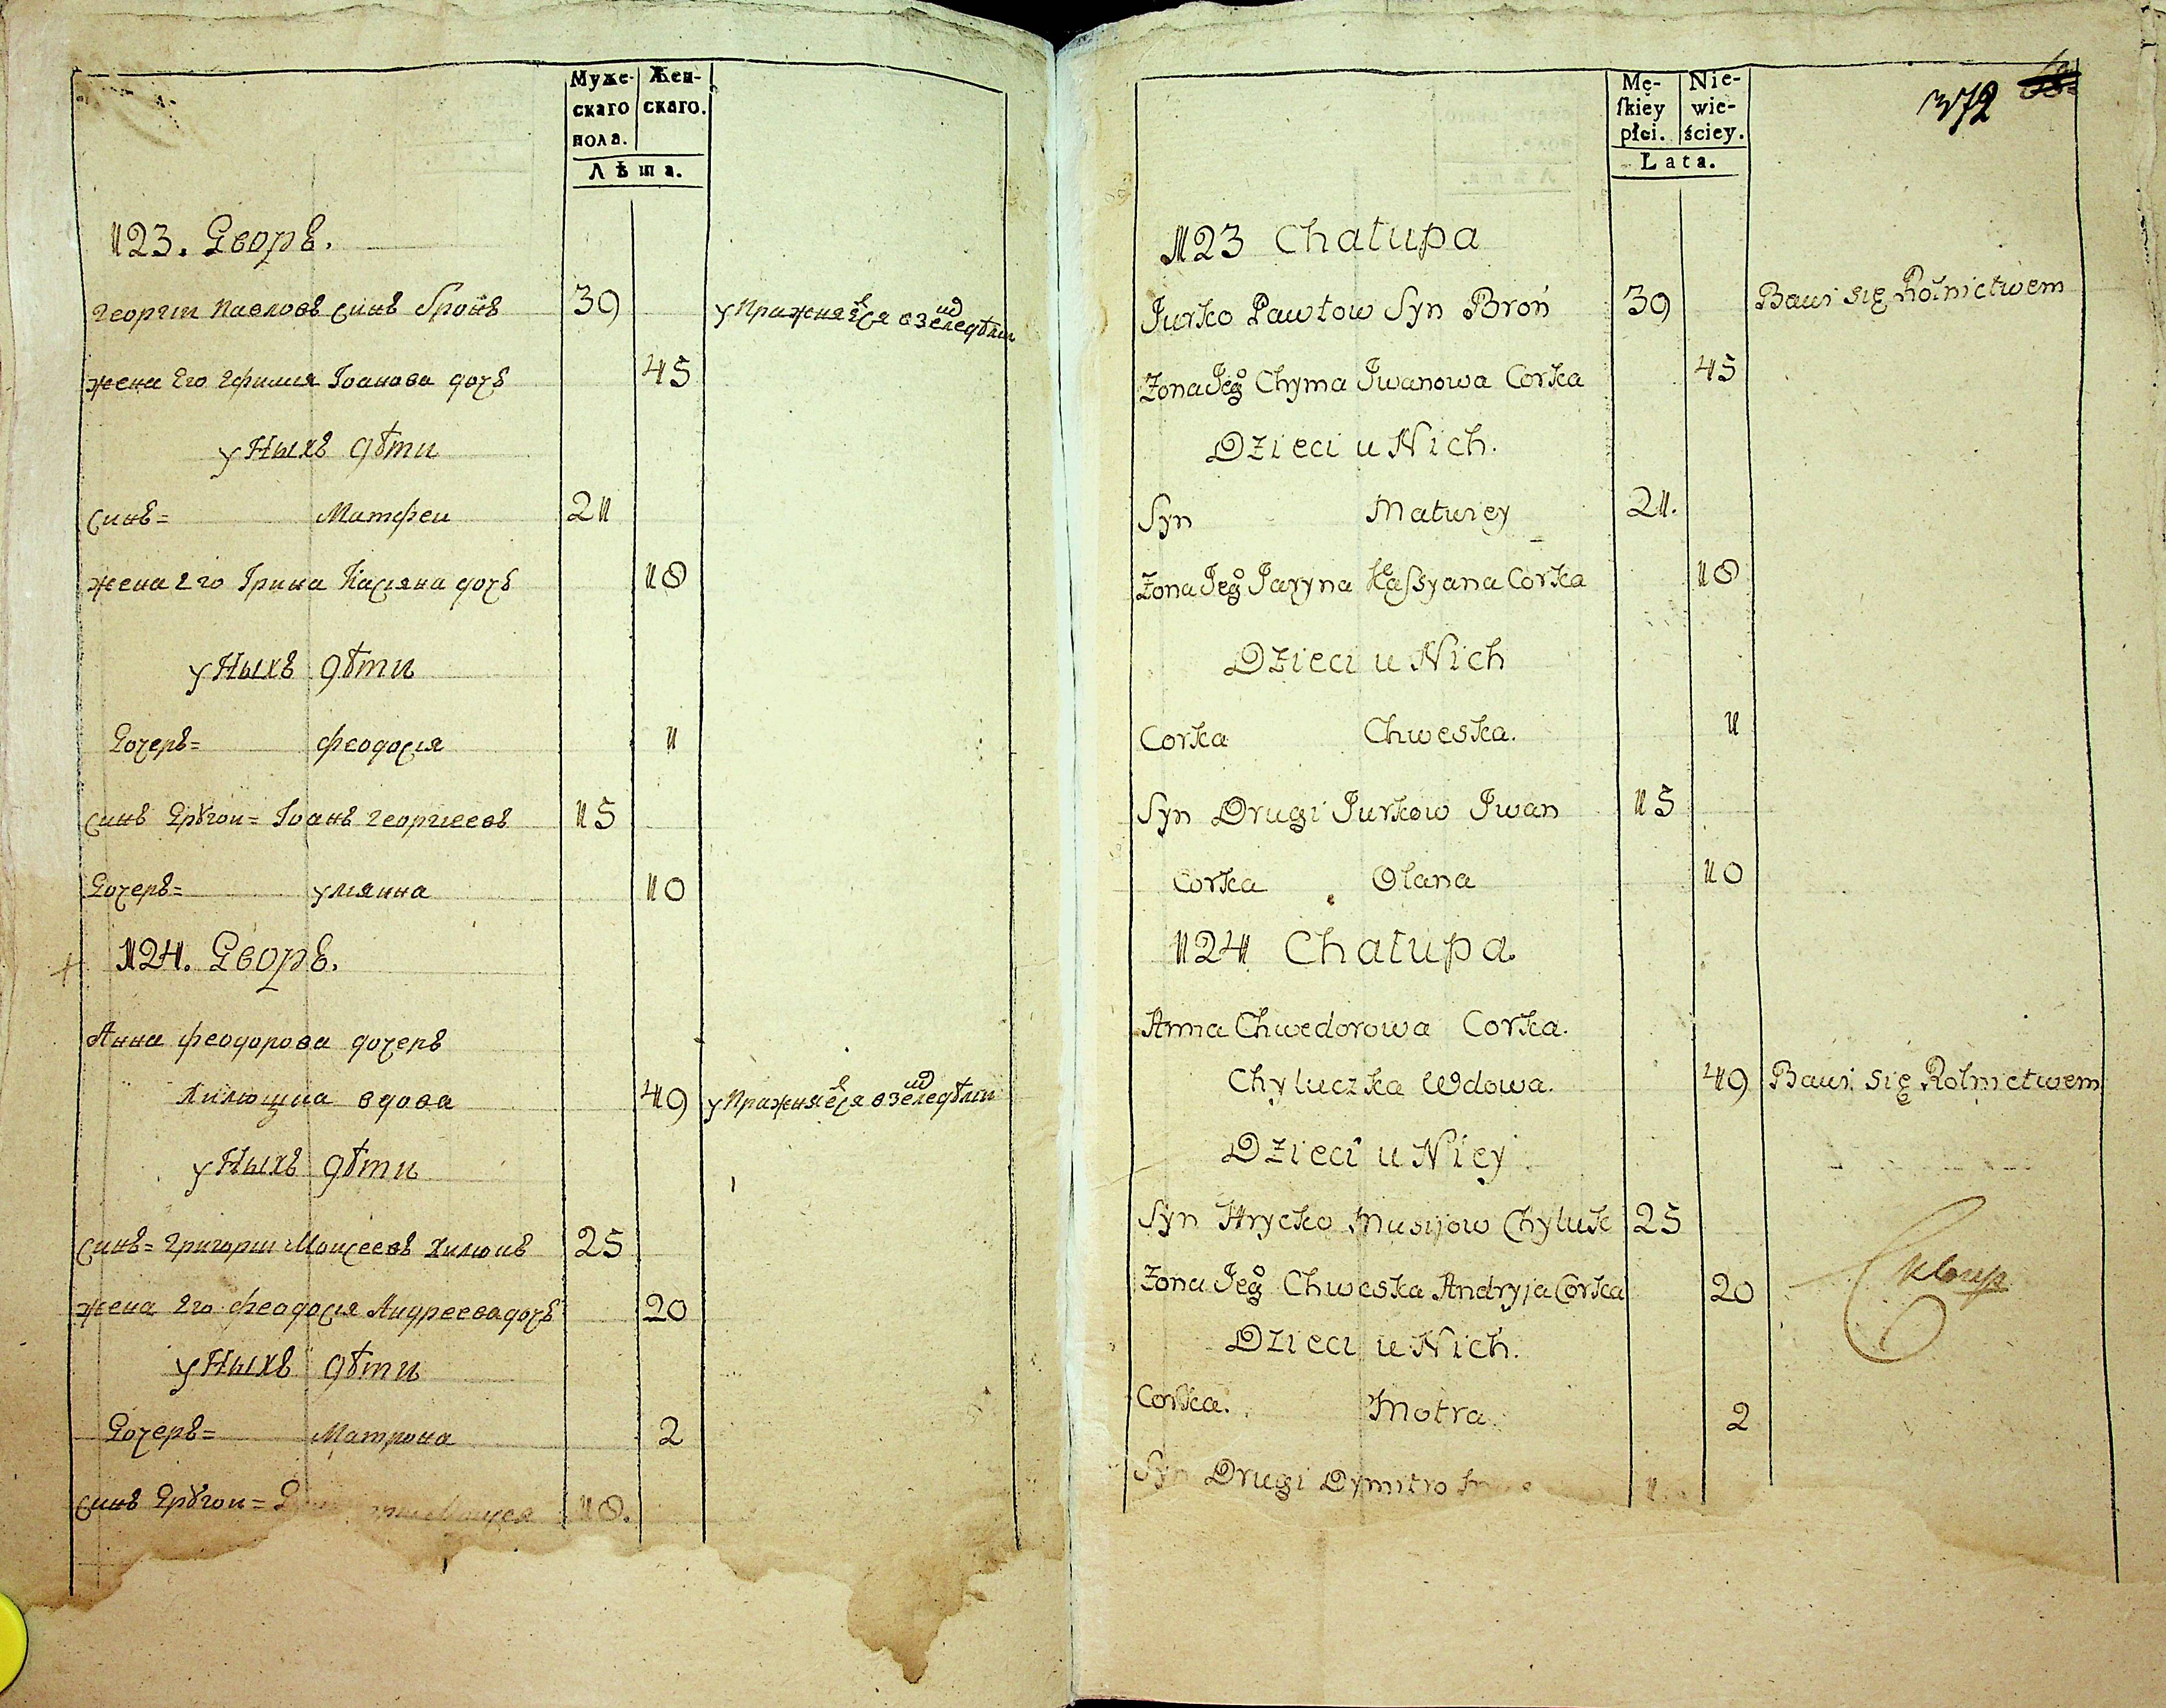 Муже-
скаго
пола.
Жен-
скаго.
Лѣта.
123. Дворъ.
Георгіи Павловъ синъ Бронъ 39 упражняется в земледѣліи
жена Его Ефимия Іоанова дочъ 45
у Ныхъ дѣти
синъ= Матфеи 21
жена Его Ірина Касіяна дочъ 18
у Ныхъ дѣти
Дочерь= Феодосія 1
синъ Другои= Іоанъ Георгіеевъ 15
Дочерь= улиянна 10
124. Дворъ.
Анна феодорова дочеръ
Хилющиа вдова 49 упражняется в земледѣліи
у Ныхъ дѣти
синъ= Григории Моисеевъ Хилюкъ 25
жена Его феодосія Андреева дочъ 20
у Ныхъ дѣти
Дочерь= Матрона 2
синъ Другои= 18.
Mę-
skiey
płci.
Nie-
wie-
ściey.
Lata.
372
123 Chałupa
Jurko Pawłow Syn Broń 39 Bawi się Rolnictwem
Zona Jego Chyma Iwanowa Corka 45
Dzieci u Nich.
Syn Matwiey 21.
Zona Jego Jaryna Kassyana Corka 18
Dzieci u Nich
Corka Chweska. 1
Syn Drugi Jurkow Iwan 15
Corka Olana 10
124 Chałupa.
Anna Chwedorowa Corka.
Chyluczka Wdowa. 49 Bawi się Rolnictwem
Dzieci u Niey
Syn Hrycko Musijow Chyluk 25
Zona Jego Chweska Andryja Corka 20
Dzieci u Nich.
Corka. Motra 2
Syn Drugi Dymitro